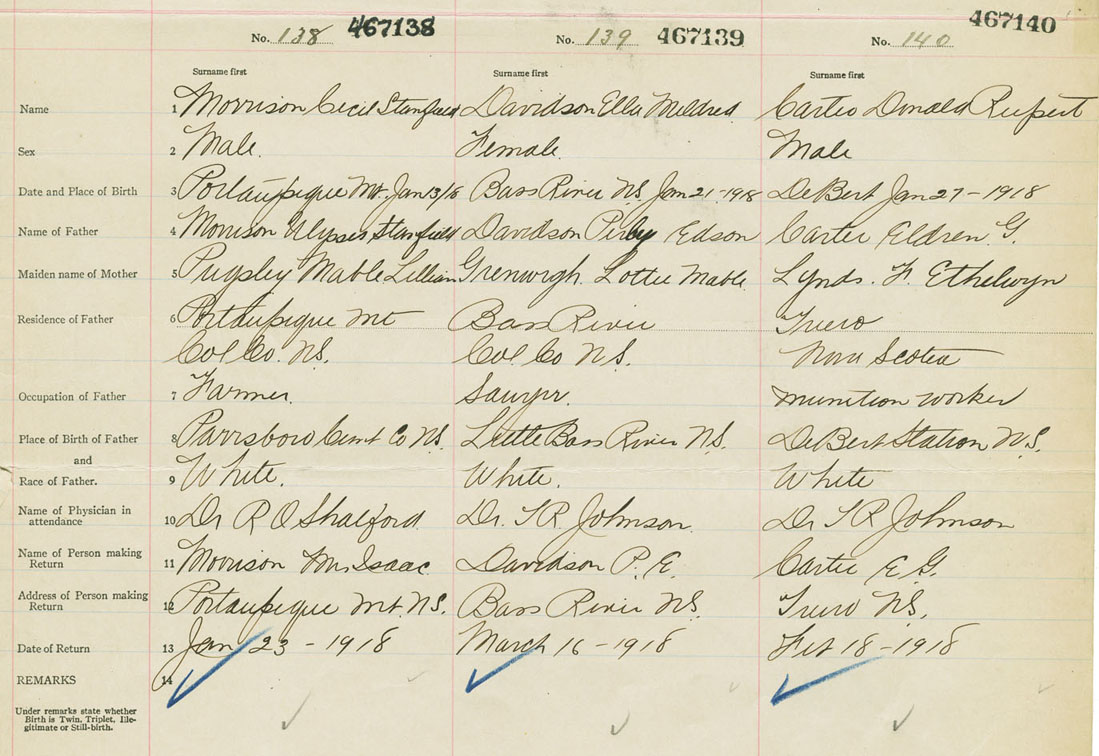 No. 138 467138 No. 139 467139 No. 140 467140
Surname first Surname first Surname first
Name 1 Morrison Cecil Stanfield Davidson Ella Mildred Carter Donald Rupert
Sex 2 Male. Female. Male
Date and Place of Birth 3 Portaupique Mt. Jan 13/18 Bass River N.S. Jan 21-1918 DeBert Jan 27-1918
Name of Father 4 Morrison Ulysses Stanfield Davidson Perby Edson Carter Eldren G.
Maiden name of Mother 5 Pugsley Mable Lillian Lottie Mable Lynds. F. Ethelwyn
Residence of Father 6 Portaupique Mt Bass River Truro
Col Co. N.S. Col Co N.S. Nova Scotia
Occupation of Father 7 Farmer. Sawyer. Munition worker
Place of Birth of Father 8 Parrsboro Cumt Co N.S. Little Bass River N.S. DeBert Station N.S.
and
Race of Father. 9 White. White. White
Name of Physician in
attendance 10 Dr R O Shatford Dr. T R Johnson. Dr T R Johnson
Name of Person making
Return 11 Morrison Isaac Davidson P. E. Carter E G.
Address of Person making
Return 12 Portaupique Mt. N.S. Bass River N.S. Truro N.S.
Date of Return 13 Jan 23-1918 March 16-1918 Feb 18-1918
REMARKS 14
Under remarks state whether
Birth is Twin, Triplet, Ille-
gitimate or Still-birth.